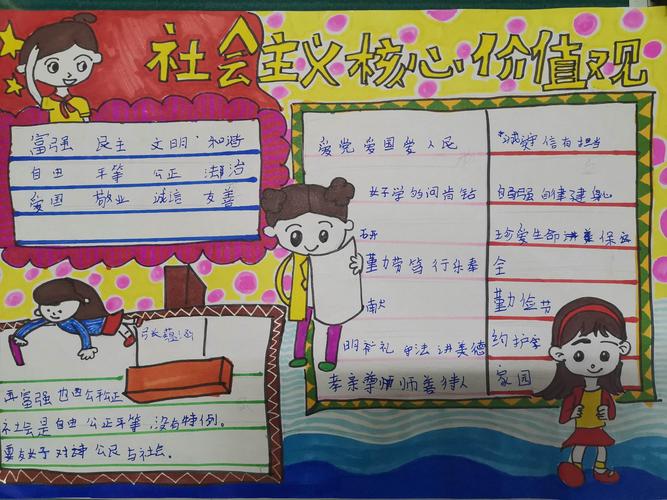 社会主义核心价值观
富强 民主 文明 和谐
自由 平等 公正 法治
爱国 敬业 诚信 友善
爱党 爱国爱人民
好学多问肯钻
研
勤劳笃行乐奉
献
明礼 法讲美德
孝亲尊师善待人
诚实守信有担当
自强自律健身心
珍爱生命讲保
全
勤俭节
约护
家园
富强也四公平公正
社会是自由公正平等,没有特例。
要友于对待公民与社会。